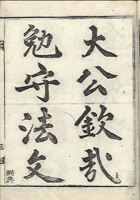 大公欽哉
勉守法文